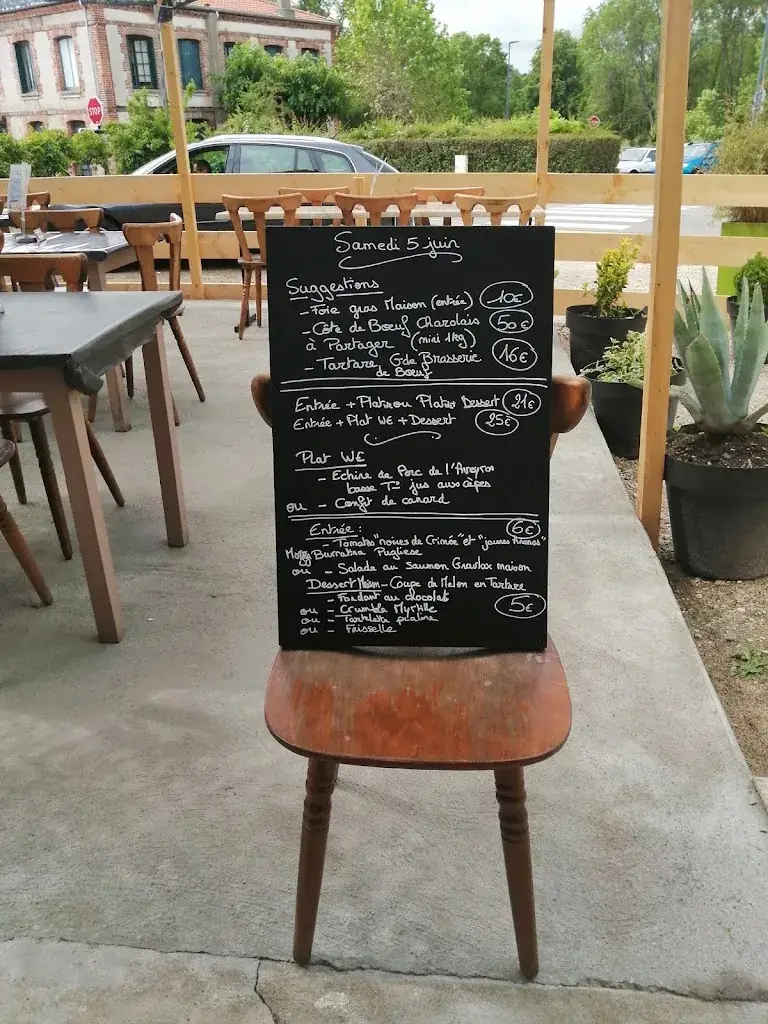 STOP
Samedi 5 juin
Suggestions
- Foie gras Maison (entrée) 10€
- Côte de Boeuf Charolais 50€
à Partager (mini 1kg)
- Tartare Gde Brasserie 16€
de Boeuf
Entrée + Plat ou Plat + Dessert 21€
Entrée + Plat WE + Dessert 25€
Plat WE
- Echine de Porc de l'Aveyron
basse T° jus aux cèpes
ou - Confit de canard
Entrée : 6€
- Tomates "noires de Crimée" et "jaunes Ananas"
Mozza Burratina Pugliese
ou - Salade au saumon Gravlax maison
Dessert Maison - Coupe de Melon en Tartare
- Fondant au chocolat 5€
ou - Crumble Myrtille
ou - Tartelette praline
ou - Faisselle